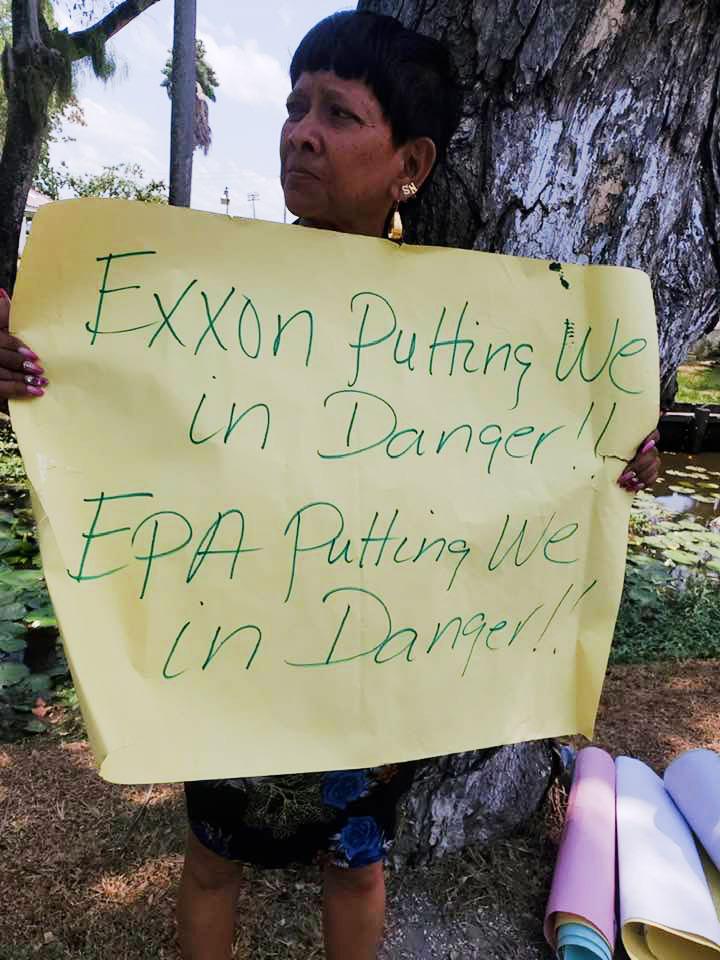 SN
Exxon Putting We
in Danger!!
EPA Putting We
in Danger!!